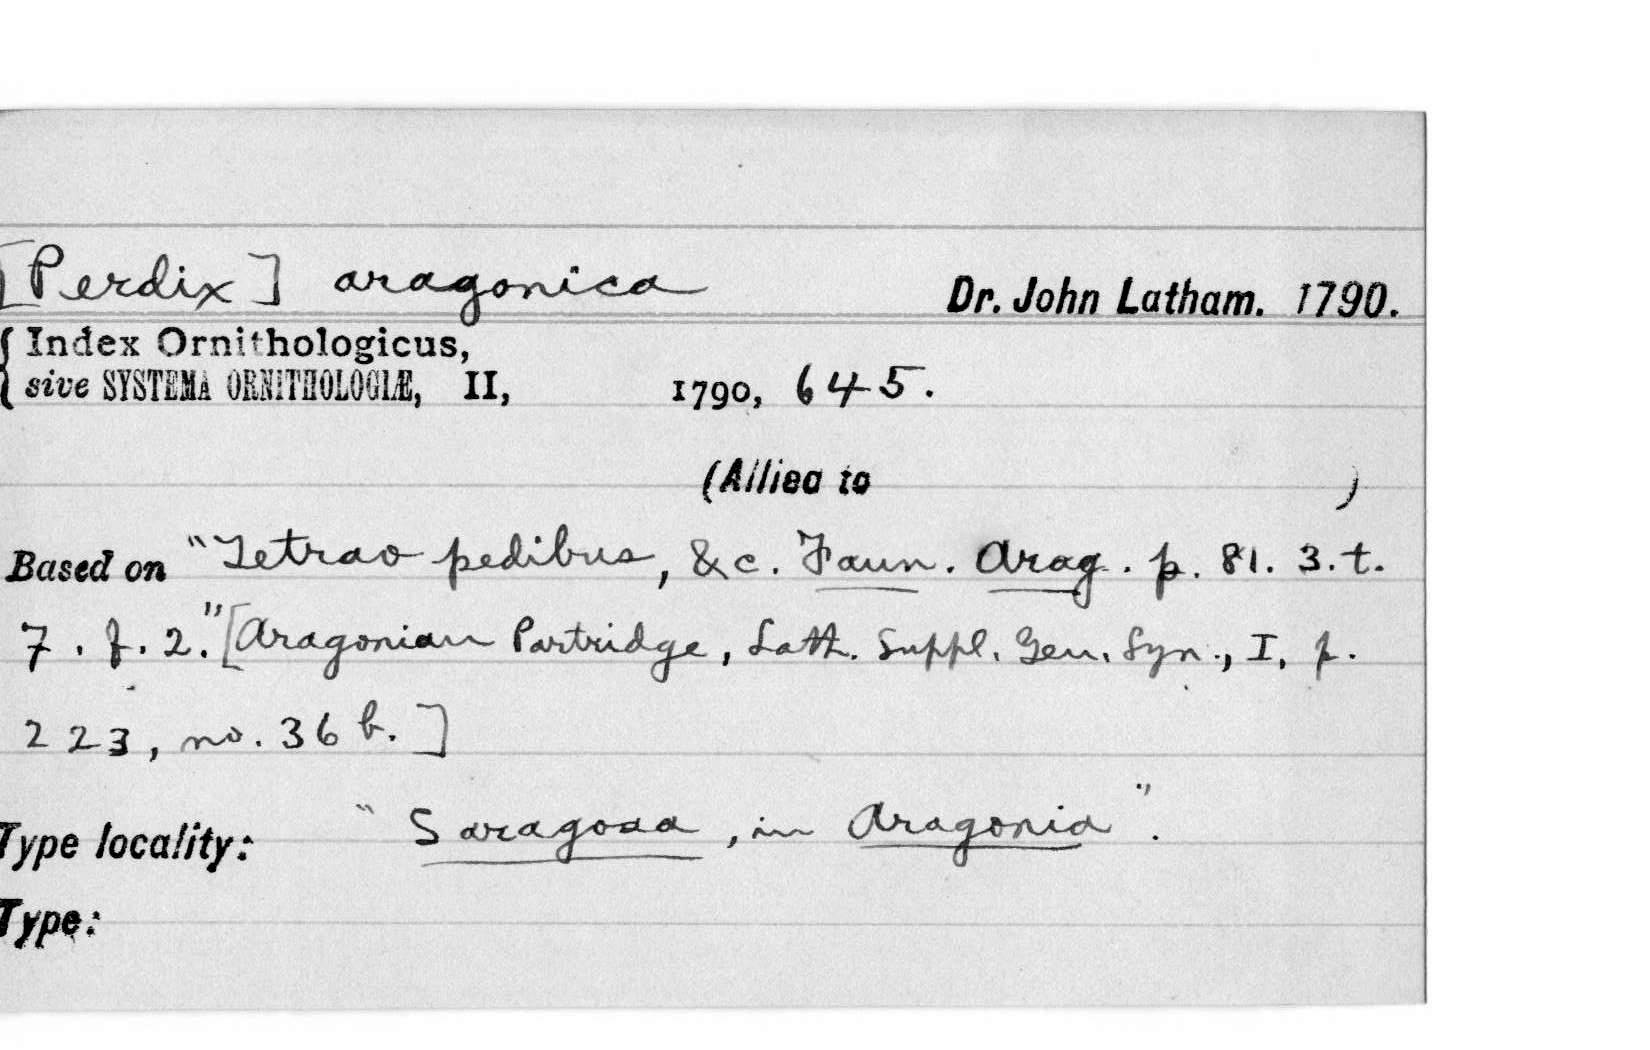 [Perdix] aragonica Dr. John Latham. 1790.
{ Index Ornithologicus,
sive SYSTEMA ORNITHOLOGIÆ, II, 1790, 645.
(Allied to )
Based on "Tetrao pedibus, &c. Faun. Arag. p. 81. 3. t.
7. f. 2." [Aragonian Partridge, Lath. Suppl. Gen. Syn., I, p.
223, no. 36 b.]
Type locality: "Saragosa, in Aragonia".
Type: